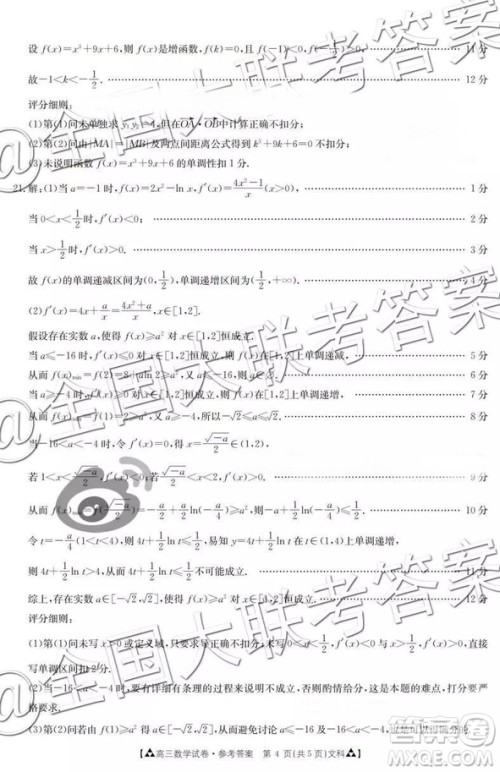 设 f(x)=x³+9x+6,则 f(x)是增函数,f(k)=0,且 f(-1)<0, …… 11 分
故-1<k<-1/2. …… 12 分
评分细则:
(1)第(1)问未单独求 y₁y₂=-4,但在OA·OB中计算正确不扣分;
(2)第(2)问由|MA|=|MB|及两点间距离公式得到 k³+9k+6=0不扣分;
(3)未说明函数 f(x)=x³+9x+6 的单调性扣 1 分.
21.解:(1)当 a=-1时,f(x)=2x²-ln x,f′(x)=(4x²-1)/x (x>0), …… 1 分
当 0<x<1/2时,f′(x)<0, …… 2 分
当 x>1/2时,f′(x)>0. …… 3 分
故 f(x)的单调递减区间为(0,1/2),单调递增区间为(1/2,+∞). …… 4 分
(2)f′(x)=4x+a/x=(4x²+a)/x,x∈[1,2].
假设存在实数 a,使得 f(x)≥a² 对 x∈[1,2]恒成立.
当 a≤-16时,f′(x)≤0 对 x∈[1,2]恒成立,则 f(x)在[1,2]上单调递减, …… 5 分
从而 f(x)min=f(2)=8+aln 2≥a², …… 6 分
当 a≥-4时,f′(x)≥0 对 x∈[1,2]恒成立,则 f(x)在[1,2]上单调递增, …… 7 分
从而 f(x)min=f(1)=2≥a²,所以-√2≤a≤√2. …… 8 分
当-16<a<-4时,令 f′(x)=0,得 x=√(-a)/2∈(1,2),
若 1<x<√(-a)/2,f′(x)<0,若√(-a)/2<x<2,f′(x)>0. …… 9 分
…… 10 分
令 t=-a/4(1<t<4),则 t+1/2 ln t≤1/2,易知 y=4t+1/2 ln t在(1,4)上单调递增,
则 4t+1/2 ln t>4,从而 4t+1/2 ln t≤1/2不可能成立. …… 11 分
综上,存在实数 a∈[-√2,√2],使得 f(x)≥a² 对 x∈[1,2]恒成立. …… 12 分
评分细则:
(1)第(1)问未写 x>0 或定义域,只要求导正确且得到的单调区间正确,不扣分;未写 f′(x)<0,f′(x)>0,直接
写单调区间扣 2 分.
(2)当-16<a<-4时,要有规范的过程说明该情况不成立,否则要扣分.
(3)第(2)问若由 f(1)≥a² 得
▲高三数学试卷·参考答案 第 4 页(共 5 页)文科▲
@全国大联考答案